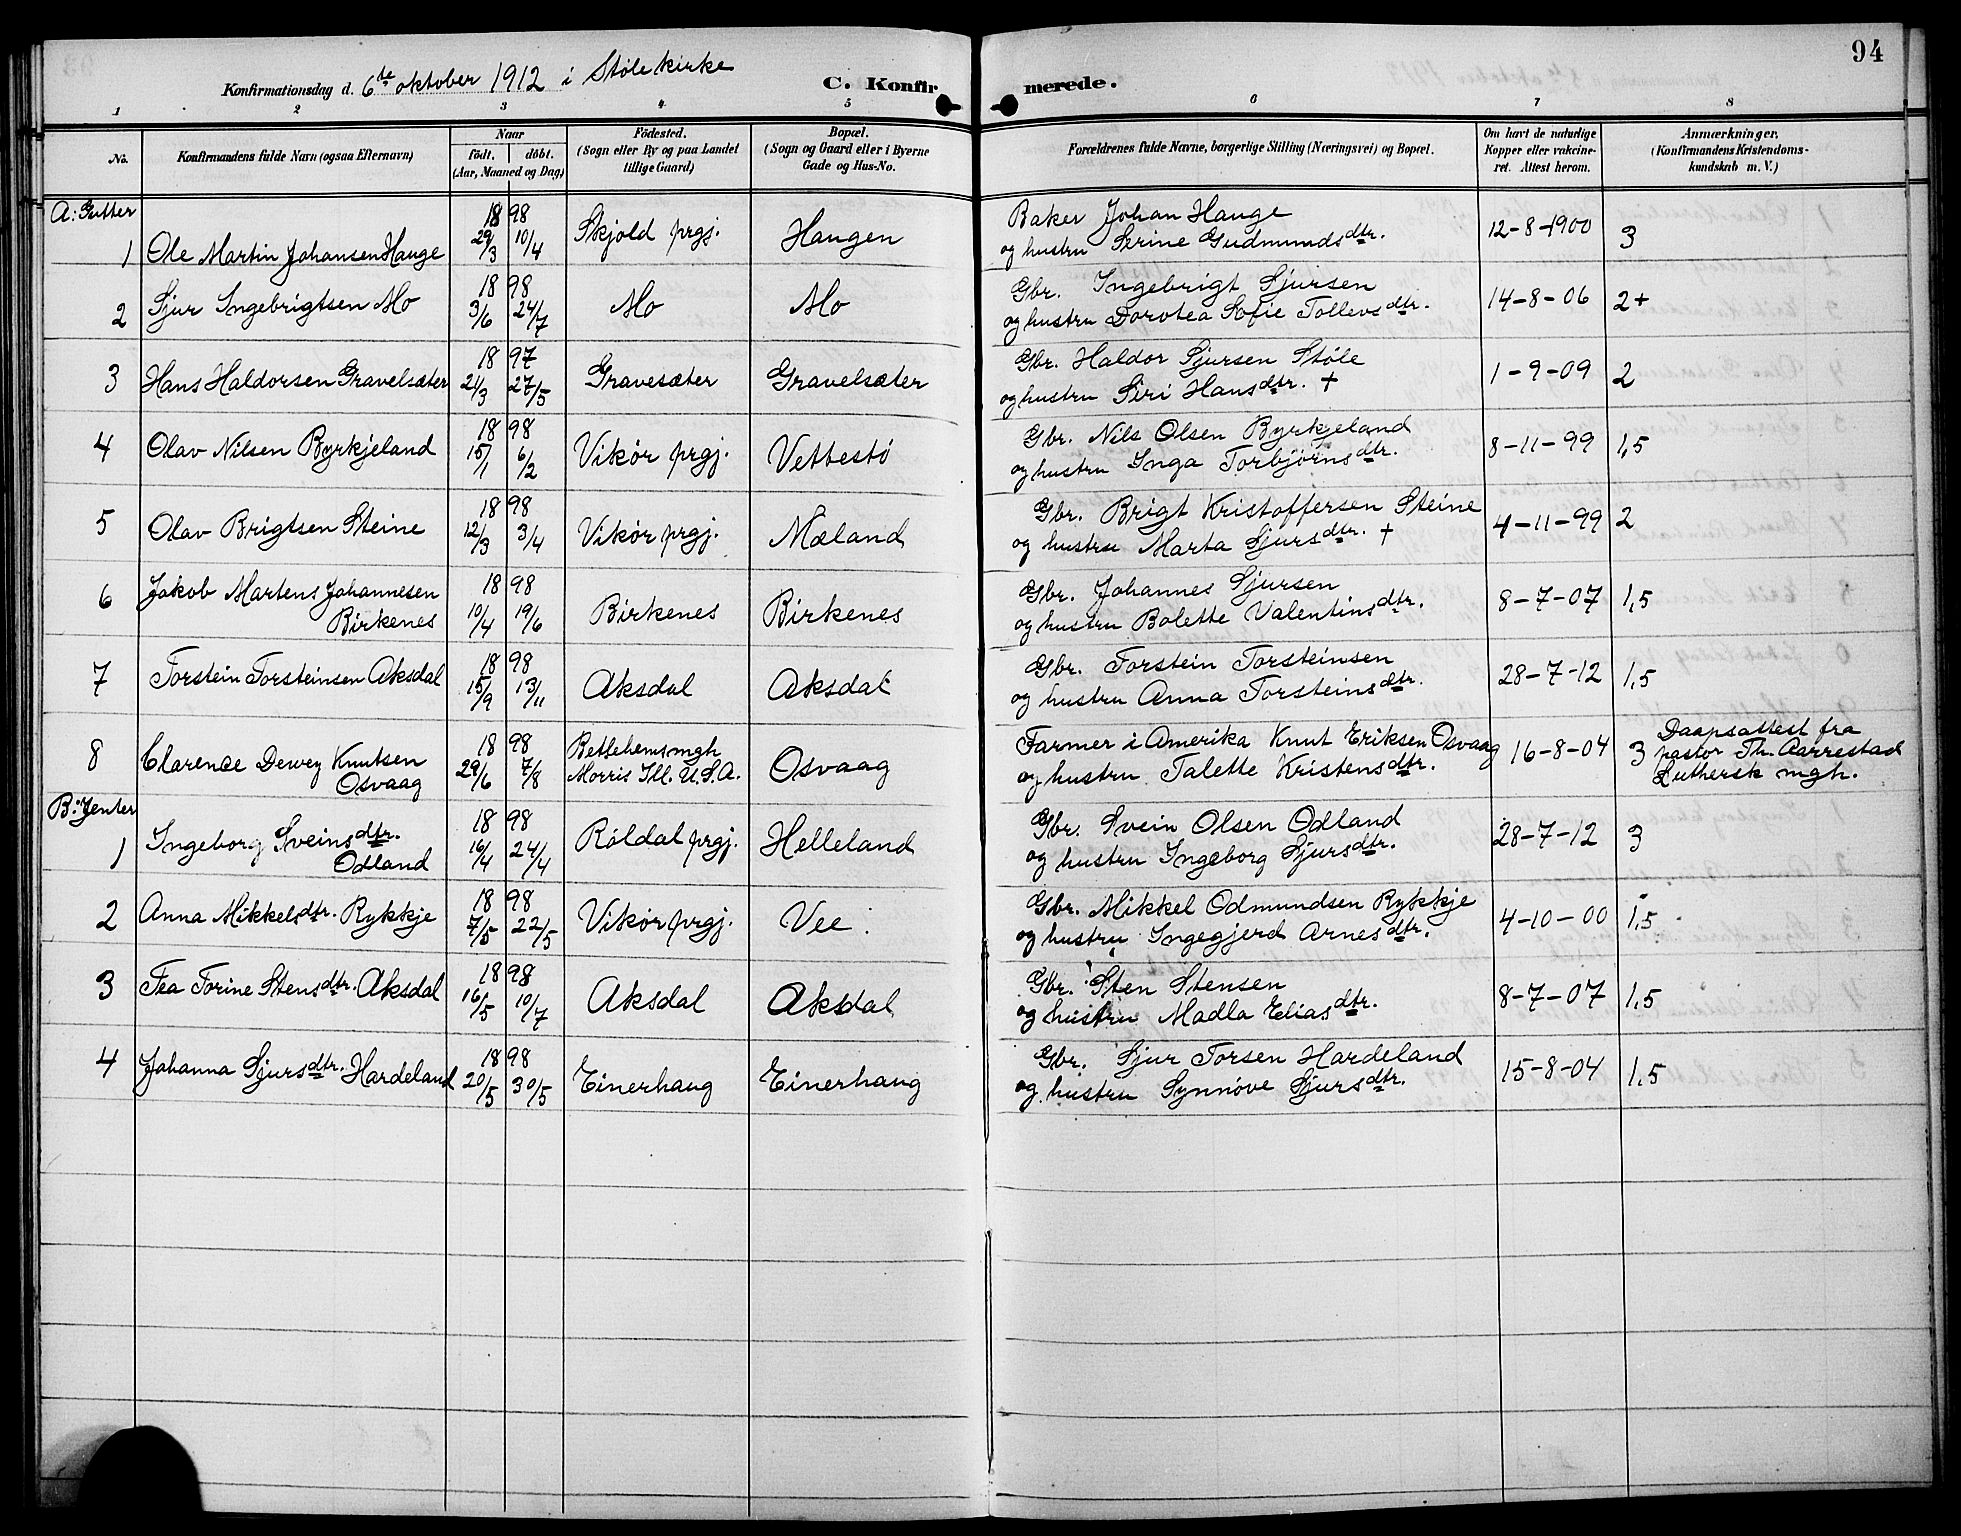 94
Konfirmationsdag d. 6te oktober 1912 i Støle kirke
C. Konfirmerede.
1 2 3 4 5 6 7 8
No.
Konfirmandens fulde Navn (ogsaa Efternavn)
Naar
födt. döbt.
(Aar, Maaned og Dag)
Födested.
(Sogn eller By og paa Landet
tillige Gaard)
Bopæl.
(Sogn og Gaard eller i Byerne
Gade og Hus-No.
Forældrenes fulde Navne, borgerlige Stilling (Næringsvei) og Bopæl.
Om havt de naturlige
Kopper eller vakcine-
ret. Attest herom.
Anmærkninger,
(Konfirmandens Kristendoms-
kundskab m. V.)
A: Gutter
1 Ole Martin Johansen Hauge 1898 29/3 10/4 Skjold prgj. Haugen
Baker Johan Hauge
og hustru Serine Gudmundsdtr. 12-8-1900 3
2 Sjur Ingebrigtsen Mo 1898 3/6 24/7 Mo Mo
Gbr. Ingebrigt Sjursen
og hustru Dorotea Sofie Tollevsdtr. 14-8-06 2+
3 Hans Haldorsen Gravelsæter 1897 24/3 27/5 Gravesæter Gravelsæter
Gbr. Haldor Sjursen Støle
og hustru Siri Hansdtr. + 1-9-09 2
4 Olav Nilsen Byrkjeland 1898 15/1 6/2 Vikør prgj. Vettestø
Gbr. Nils Olsen Byrkjeland
og hustru Inga Torbjørnsdtr. 8-11-99 1,5
5 Olav Brigtsen Steine 1898 12/3 3/4 Vikør prgj. Mæland
Gbr. Brigt Kristoffersen Steine
og hustru Marta Sjursdtr. + 4-11-99 2
6 Jakob Martens Johannesen
Birkenes 1898 10/4 19/6 Birkenes Birkenes
Gbr. Johannes Sjursen
og hustru Bolette Valentinsdtr. 8-7-07 1,5
7 Torstein Torsteinsen Aksdal 1898 15/9 13/11 Aksdal Aksdal
Gbr. Torstein Torsteinsen
og hustru Anna Torsteinsdtr. 28-7-12 1,5
8 Clarence Dewey Knutsen
Osvaag 1898 29/6 7/8 Betlehemsmgh
Morris Ill. U.S.A. Osvaag
Farmer i Amerika Knut Eriksen Osvaag
og hustru Talette Kristensdtr. 16-8-04 3
Daapsattest fra
pastor Th. Aarrestad
Luthersk mgh.
B: Jenter
1 Ingeborg Sveinsdtr.
Odland 1898 16/4 24/4 Røldal prgj. Helleland
Gbr. Svein Olsen Odland
og hustru Ingeborg Sjursdtr. 28-7-12 3
2 Anna Mikkelsdtr. Rykkje 1898 7/5 22/5 Vikør prgj. Vee
Gbr. Mikkel Odmundsen Rykkje
og hustru Ingegjerd Arnesdtr. 4-10-00 1,5
3 Tea Torine Stensdtr. Aksdal 1898 16/5 10/7 Aksdal Aksdal
Gbr. Sten Stensen
og hustru Madla Eliasdtr. 8-7-07 1,5
4 Johanna Sjursdtr. Hardeland 1898 20/5 30/5 Einerhaug Einerhaug
Gbr. Sjur Torsen Hardeland
og hustru Synnøve Sjursdtr. 15-8-04 1,5